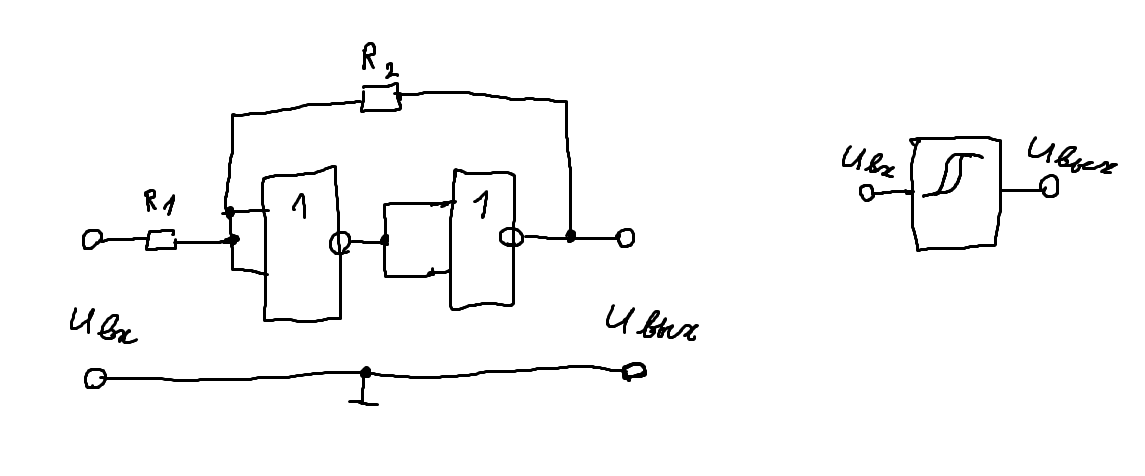 R2
R1
1
1
Uвх
Uвых
Uвх
Uвых